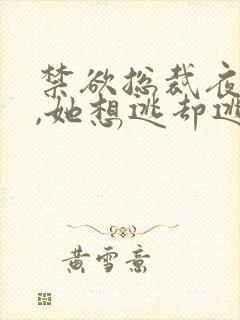 禁欲总裁夜
,她想逃却逃
黄雪意